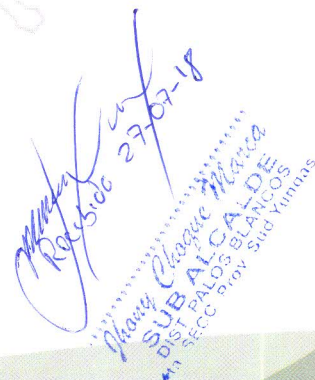 Recibido 27-07-18
Jhonny Choque Mamani
SUB ALCALDE
DIST. PALOS BLANCOS
SECC. Prov. Sud Yungas